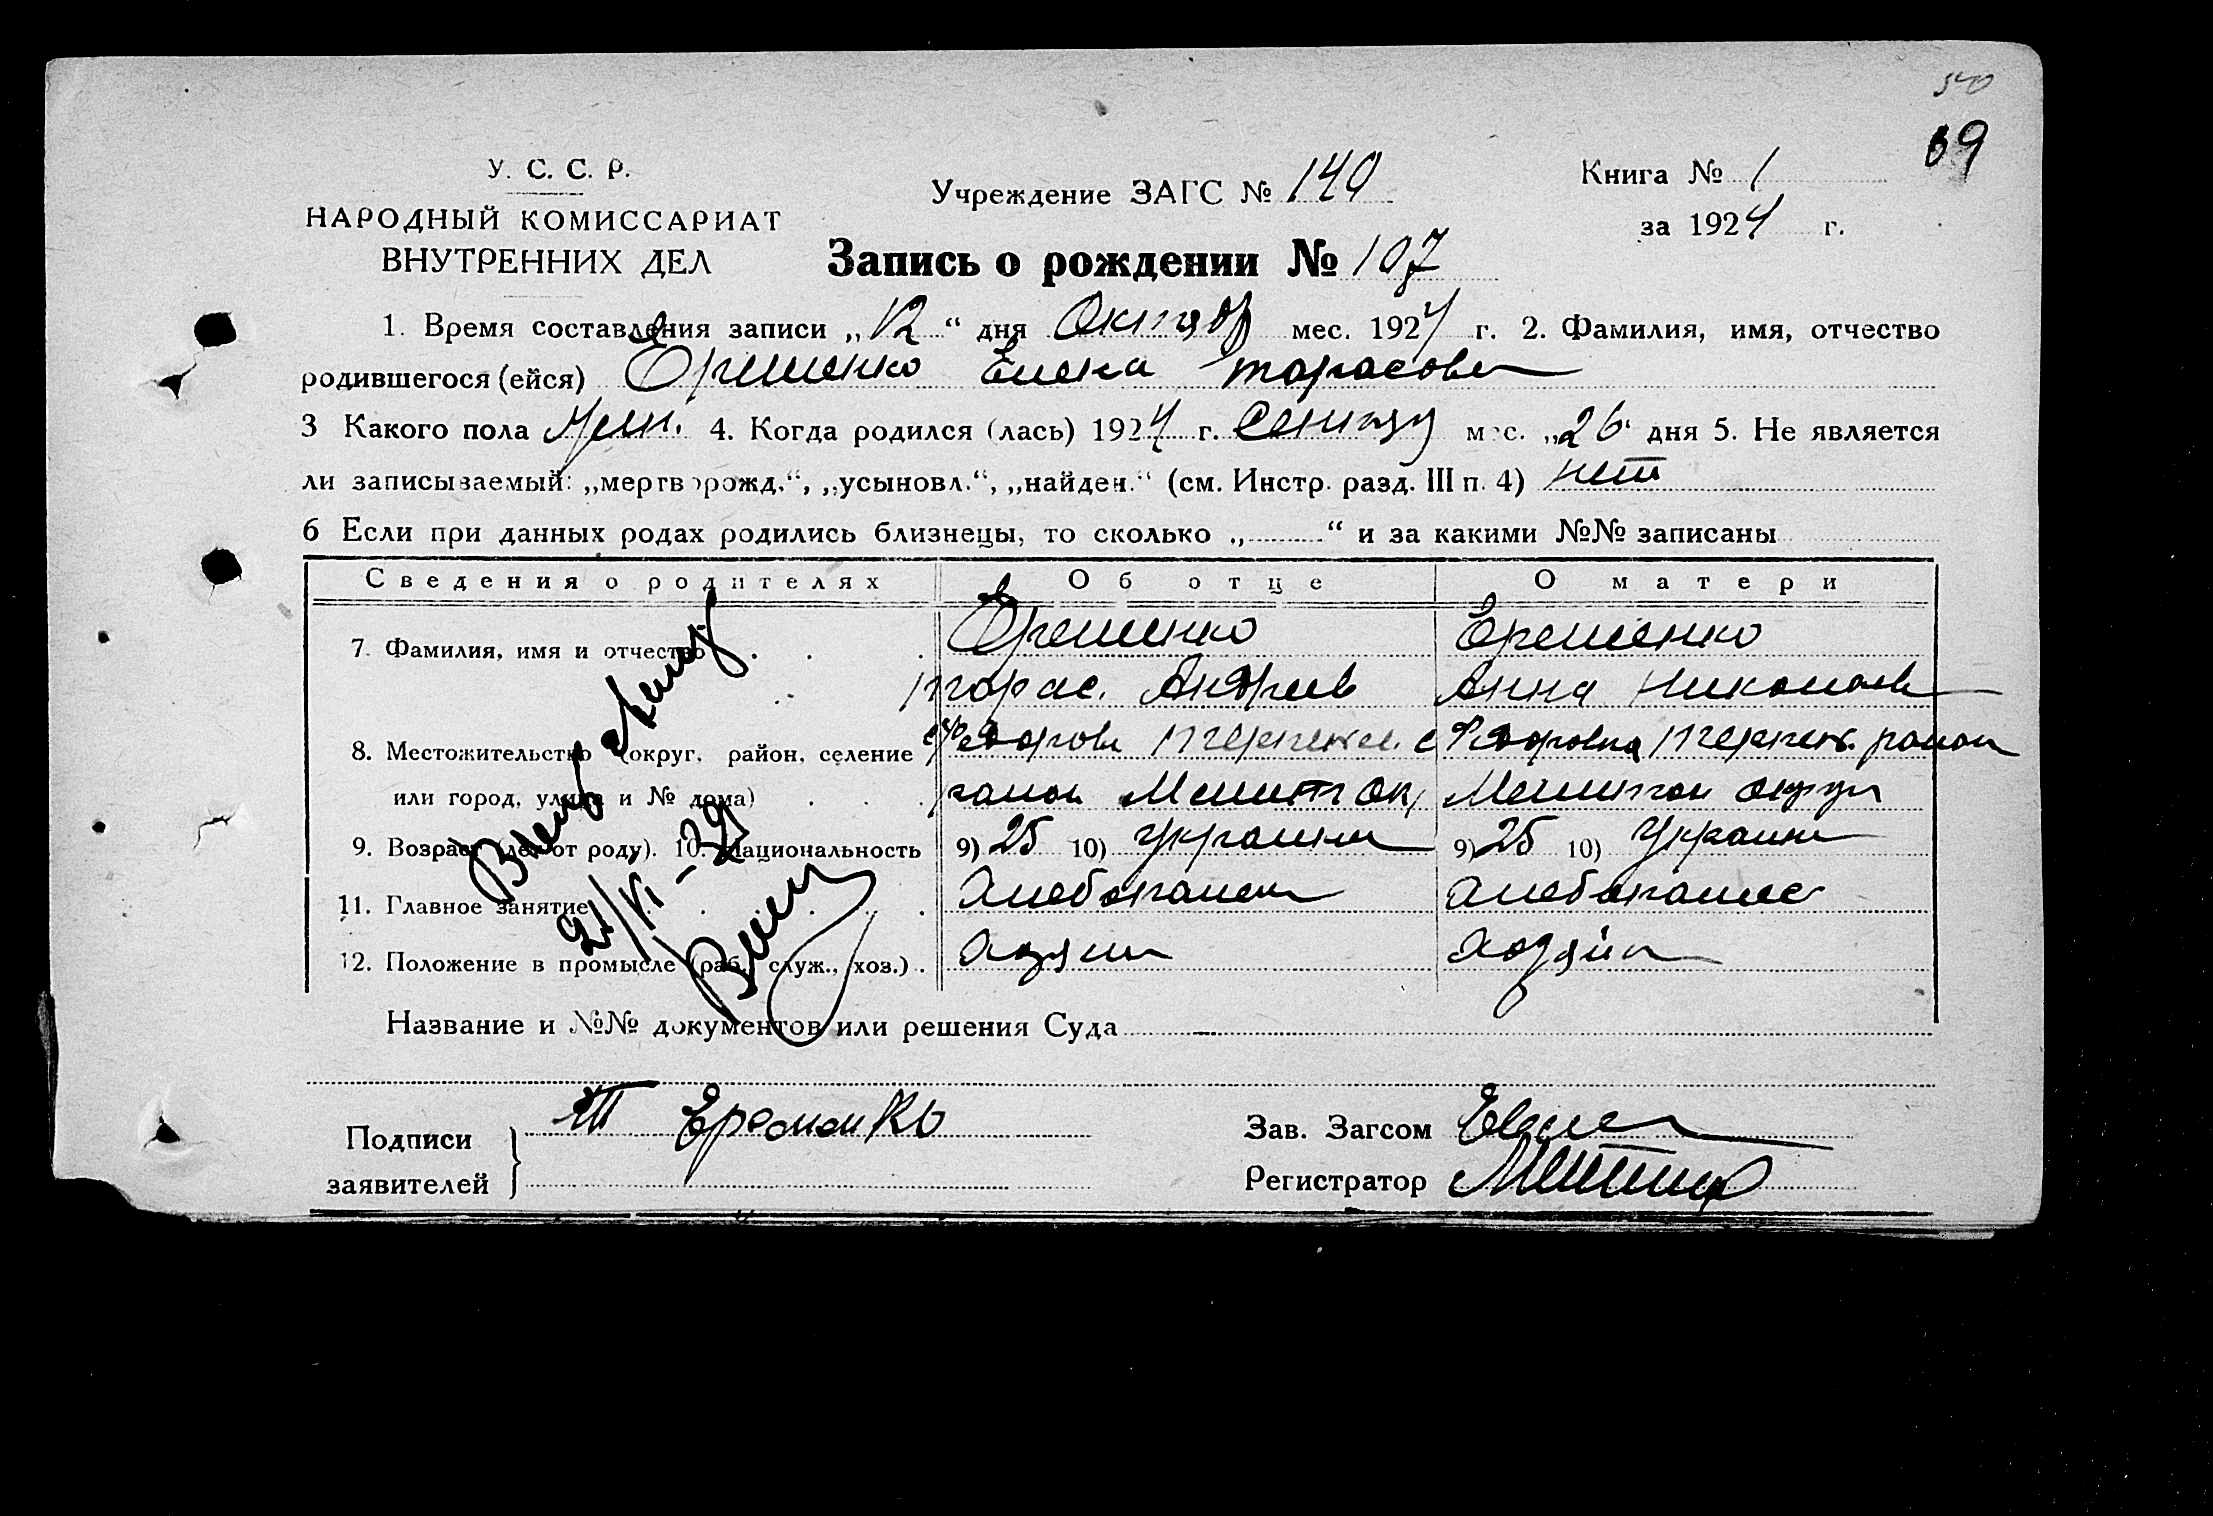 540
69
У. С. С. Р.
НАРОДНЫЙ КОМИССАРИАТ
ВНУТРЕННИХ ДЕЛ
Учреждение ЗАГС № 140
Книга № 1
за 1924 г.
Запись о рождении № 107
1. Время составления записи „12“ дня Октяб мес. 1924 г. 2. Фамилия, имя, отчество
родившегося (ейся) Еременко Елена Тарасовн
3 Какого пола жен. 4. Когда родился (лась) 1924 г. Сентяб мес. „26“ дня 5. Не является
ли записываемый: „мертворожд.“, „усыновл.“, „найден.“ (см. Инстр. разд. III п. 4) нет
6 Если при данных родах родились близнецы, то сколько „ “ и за какими №№ записаны
Сведения о родителях Об отце О матери
7. Фамилия, имя и отчество Еременко Еременко
Тарас. Андреев Анна Николаев
8. Местожительство (округ, район, селение Федоровка район
или город, улица и № дома) район Мелит Ок, Мелитоп округ
9. Возраст (лет от роду). 10. Национальность 9) 25 10) Украин 9) 25 10) Украин
11. Главное занятие Хлебопашец Хлебопашес
12. Положение в промысле (раб., служ., хоз.) Хозяин Хозяин
21/VI-39
Название и №№ документов или решения Суда —
Подписи заявителей Т Еременко
Зав. Загсом
Регистратор